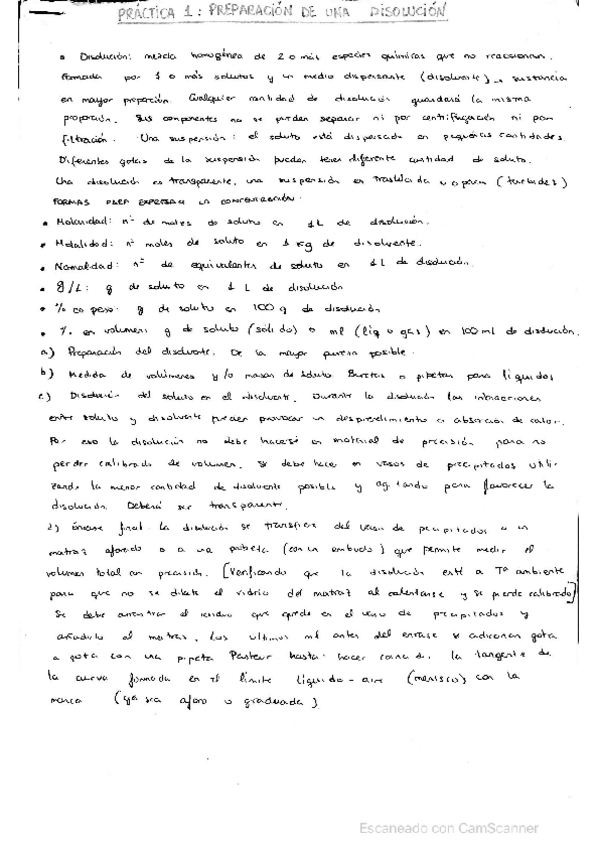 PRÁCTICA 1: PREPARACIÓN DE UNA DISOLUCIÓN
• Disolución: mezcla homogénea de 2 o más especies químicas que no reaccionan.
Formada por 1 o más solutos y un medio dispersante (disolvente) → sustancia
en mayor proporción. Cualquier cantidad de disolución guardará la misma
proporción. Sus componentes no se pueden separar ni por centrifugación ni por
filtración. Una suspensión: el soluto está dispersado en pequeñas cantidades.
Diferentes gotas de la suspensión pueden tener diferente cantidad de soluto.
Una disolución es transparente, una suspensión es traslúcida u opaca (turbides)
FORMAS PARA EXPRESAR LA CONCENTRACIÓN:
• Molaridad: nº de moles de soluto en 1L de disolución.
• Molalidad: nº moles de soluto en 1 Kg de disolvente.
• Normalidad: nº de equivalentes de soluto en 1L de disolución.
• g/L: g de soluto en 1 L de disolución
• % en peso: g de soluto en 100 g de disolución
• % en volumen: g de soluto (sólido) o ml (liq o gas) en 100 ml de disolución.
a) Preparación del disolvente. De la mayor pureza posible.
b) Medida de volúmenes y/o masas de soluto. Buretas o pipetas para líquidos
c) Disolución del soluto en el disolvente. Durante la disolución las interacciones
entre soluto y disolvente pueden provocar un desprendimiento o absorción de calor.
Por eso la disolución no debe hacerse en material de precisión para no
perder calibrado de volumen. Se debe hacer en vasos de precipitados utili-
zando la menor cantidad de disolvente posible y agitando para favorecer la
disolución. Deberá ser transparente.
d) Enrase final. La disolución se transfiere del vaso de precipitados a un
matraz aforado o a una probeta (con un embudo) que permite medir el
volumen total con precisión. [Verificando que la disolución esté a Tª ambiente
para que no se dilate el vidrio del matraz al calentarse y se pierde calibrado]
Se debe arrastrar el residuo que quede en el vaso de precipitados y
añadirlo al matraz. Los últimos ml antes del enrase se adicionan gota
a gota con una pipeta Pasteur hasta hacer coincidir la tangente de
la curva formada en el límite líquido-aire (menisco) con la
marca (ya sea aforo o graduada)
Escaneado con CamScanner